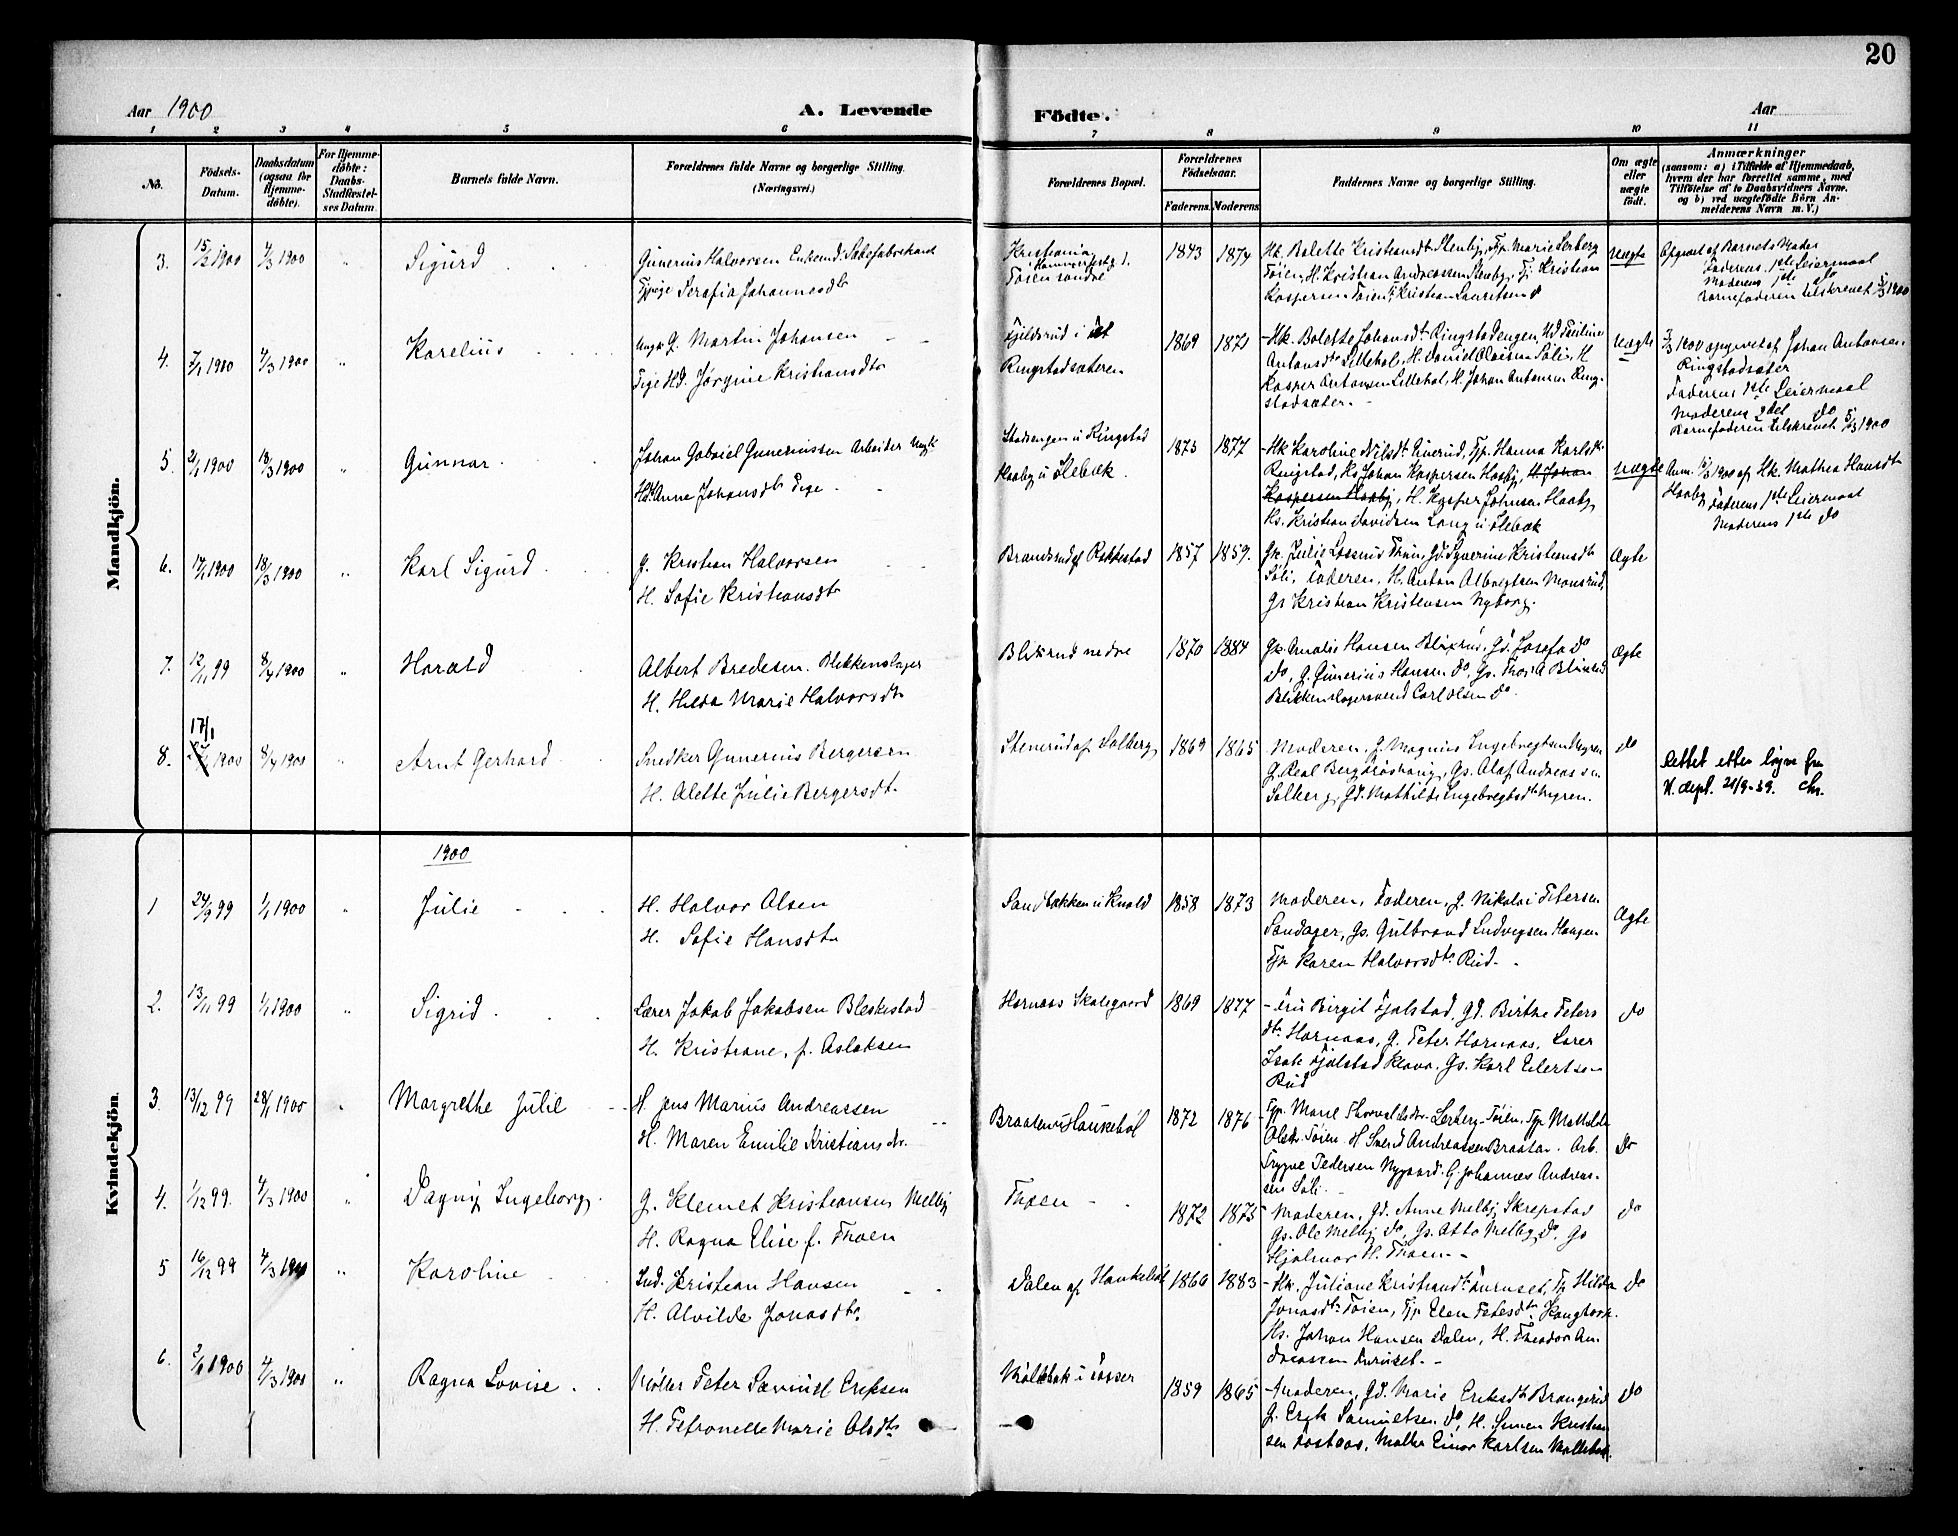 20
Aar 1900 A. Levende Födte. Aar
1 2 3 4 5 6 7 8 9 10 11
No.
Födsels-Datum.
Daabsdatum (ogsaa for Hjemme-döbte).
For Hjemme-döbte: Daabs-Stadfæstel-ses Datum.
Barnets fulde Navn.
Forældrenes fulde Navne og borgerlige Stilling. (Næringsvei.)
Forældrenes Bopæl.
Forældrenes Födselsaar.
Faderens. Moderens.
Faddernes Navne og borgerlige Stilling.
Om ægte eller uægte födt.
Anmærkninger
(saasom: a) i Tilfælde af Hjemmedaab,
hvem der har forrettet samme, med
Tilföielse af to Daabsvidners Navne.
og b) ved uægtefödte Börn An-
melderens Navn m. V.)
Mandkjön.
3. 15/2 1900 4/3 1900 " Sigurd
Gunerius Halvorsen Enkem.
Pige Serafia Johannesdtr
Kristiania
Töien söndre
1843 1874
Hk. Bolette Kristiansdtr Stenby, Pp. Marie Lerberg
Töien, H. Kristian Andreassen Stenby, Tj. Kristian
Kaspersen Töien, Kristian Lauritsen do
uægte
Opgivet af Barnets Moder
Faderens 1ste Leiermaal
Moderens 1ste do
Barnefaderen tilskrevet 5/3 1900
4. 7/1 1900 4/3 1900 " Karelius
Ungk. G. Martin Johansen
Pige Hd. Jørgine Kristiansdtr
Fjeldsrud i
Ringstadsæteren
1869 1871
Hk. Bolette Johansdtr Ringstadengen, Hd. Pauline
Antonsdtr Lillehol, H. David Olaisen Søli, H
Kasper Antonsen Lillehol, H. Johan Antonsen Ring-
stadsæter.
uægte
1900 opgivet af Johan Antonsen
Ringstadsæter
Faderens 1ste Leiermaal
Moderens 2det do
Barnefaderen tilskrevet 5/3 1900
5. 2/1 1900 18/3 1900 " Gunnar
Johan Gabriel Gunerinssen Arbeider Ungk
Hd. Anne Johansdtr Pige
Stadsengen u Ringstad
Haaby u Slebæk.
1875 1877
Hk Karoline Nilsdtr Buerud, Pp. Hanna Karlsdtr
Ringstad, Hs Johan Kaspersen Haaby, H Johan
Kaspersen Haaby, H. Kasper Johnsen Haaby
Hs. Kristian Davidsen Lang u Slebæk
uægte
Anm. 1900 af Hk. Mathea Hansdtr
Haaby Faderens 1ste Leiermaal
Moderens 1ste do
6. 17/1 1900 18/3 1900 " Karl Sigurd
G. Kristian Halvorsen
H. Sofie Kristiansdtr
Brandsrud af Rakkestad
1857 1859.
Gk. Julie Thøn, Gd. Syverine Kristiansdtr
Søli, Faderen, H. Anton Albregtsen Monsrud,
Gs Kristian Kristensen Nyborg.
Ægte
7. 12/11 99 8/4 1900 " Harald
Albert Bredesen. Blikkenslager
H. Hilda Marie Halvorsdtr
Bliksrud nedre
1870 1884
Gk. Amalie Hansen Blixrud, Gd. Josefa do
do, G. Gunerius Hansen do, Gs. Thor A Blixrud
Blikkenslagersvend Carl Olsen do.
Ægte
8. 17/1 1900 8/4 1900 " Arnt Gerhard
Snedker Gunerius Bergersen
H. Alette Julie Bergersdtr
Stenerud af Solberg
1869 1865
Moderen, G. Magnus Ingebregtsen Nygren
G. Real Berg, Gs. Olaf Andreassen
Solberg, Gd. Mathilde Ingebregtsdtr Nygren.
do
Rettet etter lögm fra
K. dept. 21/9-39. Chr.
Kvindekjön.
1900
1 24/9 99 1/1 1900 " Julie
H. Halvor Olsen
H. Sofie Hansdtr
Sandbakken u Knold
1858 1873
Moderen, Faderen, G. Nikolai Petersen
Sandager, Gs. Gulbrand Ludvigsen Haugen
Pp Karen Halvorsdtr Rud.
Ægte
2. 13/11 99 1/1 1900 " Sigrid
Lærer Jakob Jakobsen Bleskestad
H. Kristiane, f. Aslaksen
Hornaas Skolegaard
1869 1877
Fru Birgit Fjølstad, Gd. Birthe Peters
dtr Hornaas, G. Peter Hornaas, Lærer
Fjølstad Klava. Gs. Karl Eilertsen
Rud
do
3. 13/12 99 28/1 1900 " Margrethe Julie
H. Jens Marius Andreassen
H. Maren Emilie Kristiansdtr.
Braaten u Haukehol
1872 1876
Pp. Marie Thorvaldsdtr. Lerberg Töien, Pp Mathilde
Olsdtr. Töien. H Svend Andreassen Braaten. Arb.
Trygve Pedersen Nygaard. G. Johannes Andreas-
sen Søli.
Do
4. 1/12 99. 4/3 1900 " Dagny Ingeborg.
G. Klemet Kristiansen Melby
H. Ragna Elise f. Thoen
Thoen
1872 1875
Moderen, Gd. Anne Melby Skrepstad
Gs. Ole Melby do, Gs. Otto Melby do. Gs
Hjalmar H. Thoen.
do
5 16/12 99 4/3 1900 " Karoline
Ind. Kristian Hansen
H. Alvilde Jonasdtr.
Dalen af Haukehol
1860 1883
Hk. Juliane Kristiansdtr Furuset, Pp Hilda
Jonasdtr Töien, Pp Elen Petersdtr Kongtorp.
Hs. Johan Hansen Dalen, H. Theodor An-
dreassen Furuset.
do
6. 1900 4/3 1900 " Ragna Lovise.
Møller Peter Samuel Eriksen
H. Petronelle Marie Olsdtr
Mølebak i Fosser
1859 1865
Moderen, Gd. Marie Eriksdtr Brangerud
G. Erik Samuelsen do, H. Simen Kristian
sen Fostaas, Møller Einar Karlsen Mollebak.
do